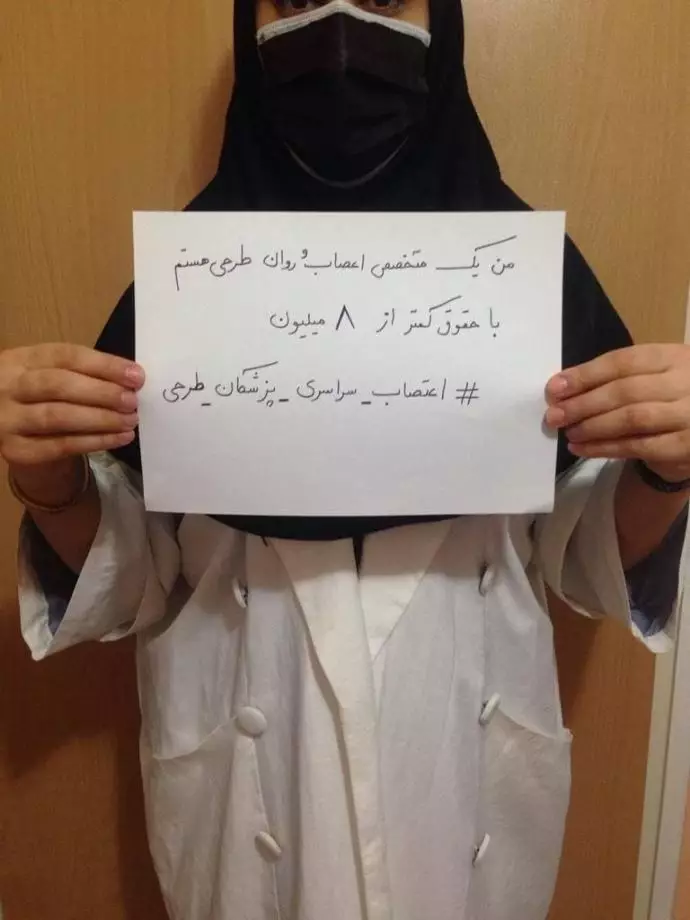 من یک متخصص اعصاب و روان طرحی هستم
با حقوق کمتر از ۸ میلیون
# اعتصاب_سراسری_پزشکان_طرحی